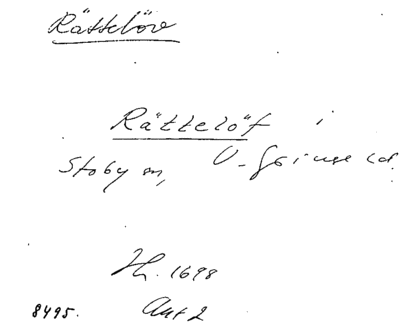 Rättelöv
Rättelöf i
Stoby sn, V. Göinge hd.
Jb. 1698
Ant 2
8495.